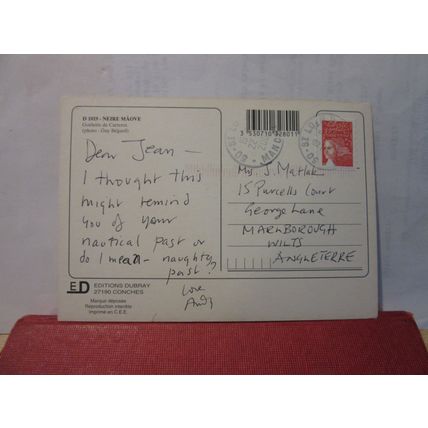 D 1019 - NEIRE MÂOVE
3 530710 928011
Dear Jean —
I thought this
might remind
you of your
nautical past or
do I mean - naughty
past?
Love
Andy
Mrs J. Matlak
15 Purcells Court
George Lane
MARLBOROUGH
WILTS
ANGLETERRE
ED
EDITIONS DUBRAY
27190 CONCHES
Marque déposée
Reproduction interdite
Imprimé en C.E.E.